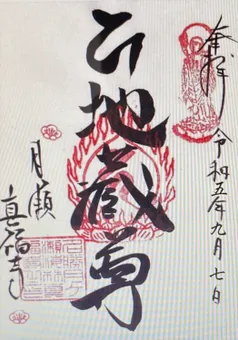 奉拝 令和五年九月七日
地蔵尊
月瀬
真福寺